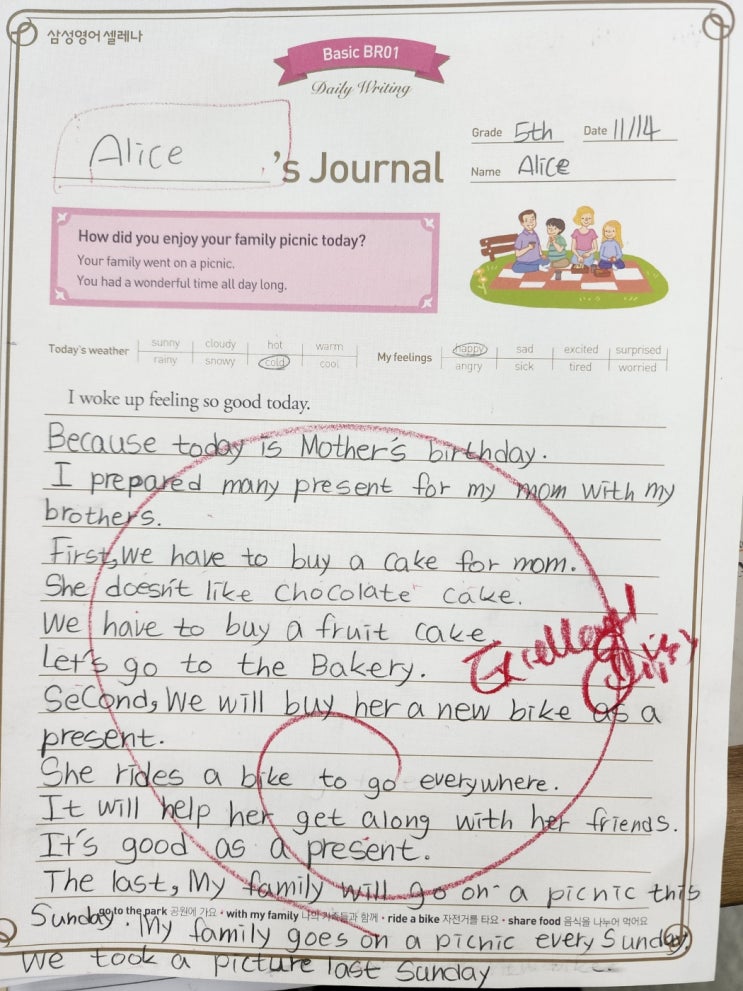 삼성영어 셀레나
Basic BR01
Daily Writing
Alice 's Journal
Grade 5th Date 11/14
Name Alice
How did you enjoy your family picnic today?
Your family went on a picnic.
You had a wonderful time all day long.
Today's weather sunny cloudy hot warm
rainy snowy cold cool
My feelings happy sad excited surprised
angry sick tired worried
I woke up feeling so good today.
Because today is Mother's birthday.
I prepared many present for my mom with my
brothers.
First, We have to buy a cake for mom.
She doesn't like chocolate cake.
We have to buy a fruit cake
Let's go to the Bakery.
Excellent
Second, We will buy her a new bike as a
present.
She rides a bike to go everywhere.
It will help her get along with her friends.
It's good as a present.
The last, My family will go on a picnic this
Sunday. My family goes on a picnic every Sunday.
go to the park 공원에 가요 • with my family 나의 가족들과 함께 • ride a bike 자전거를 타요 • share food 음식을 나누어 먹어요
We took a picture last Sunday